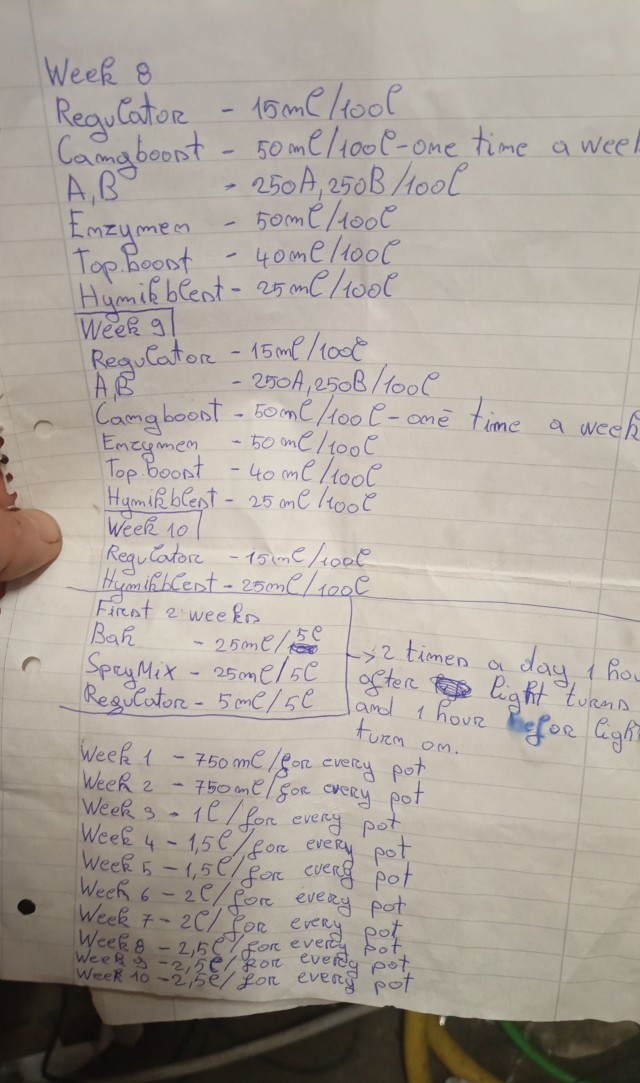 Week 8
Regulator - 15ml/100l
Camgboost - 50ml/100l - one time a week
A,B - 250A, 250B/100l
Enzymen - 50ml/100l
Top.boost - 40ml/100l
Hymikblest - 25ml/100l
Week 9
Regulator - 15ml/100l
A,B - 250A, 250B/100l
Camgboost - 50ml/100l - one time a week
Enzymen - 50ml/100l
Top.boost - 40ml/100l
Hymikblest - 25ml/100l
Week 10
Regulator - 15ml/100l
Hymikblest - 25ml/100l
First 2 weeks
Bak - 25ml/5l
SpryMix - 25ml/5l
Regulator - 5ml/5l
→ 2 times a day, 1 hou
after light turns
and 1 hour befor light
turn on.
Week 1 - 750ml/for every pot
Week 2 - 750ml/for every pot
Week 3 - 1l/for every pot
Week 4 - 1,5l/for every pot
Week 5 - 1,5l/for every pot
Week 6 - 2l/for every pot
Week 7 - 2l/for every pot
Week 8 - 2,5l/for every pot
Week 9 - 2,5l/for every pot
Week 10 - 2,5l/for every pot